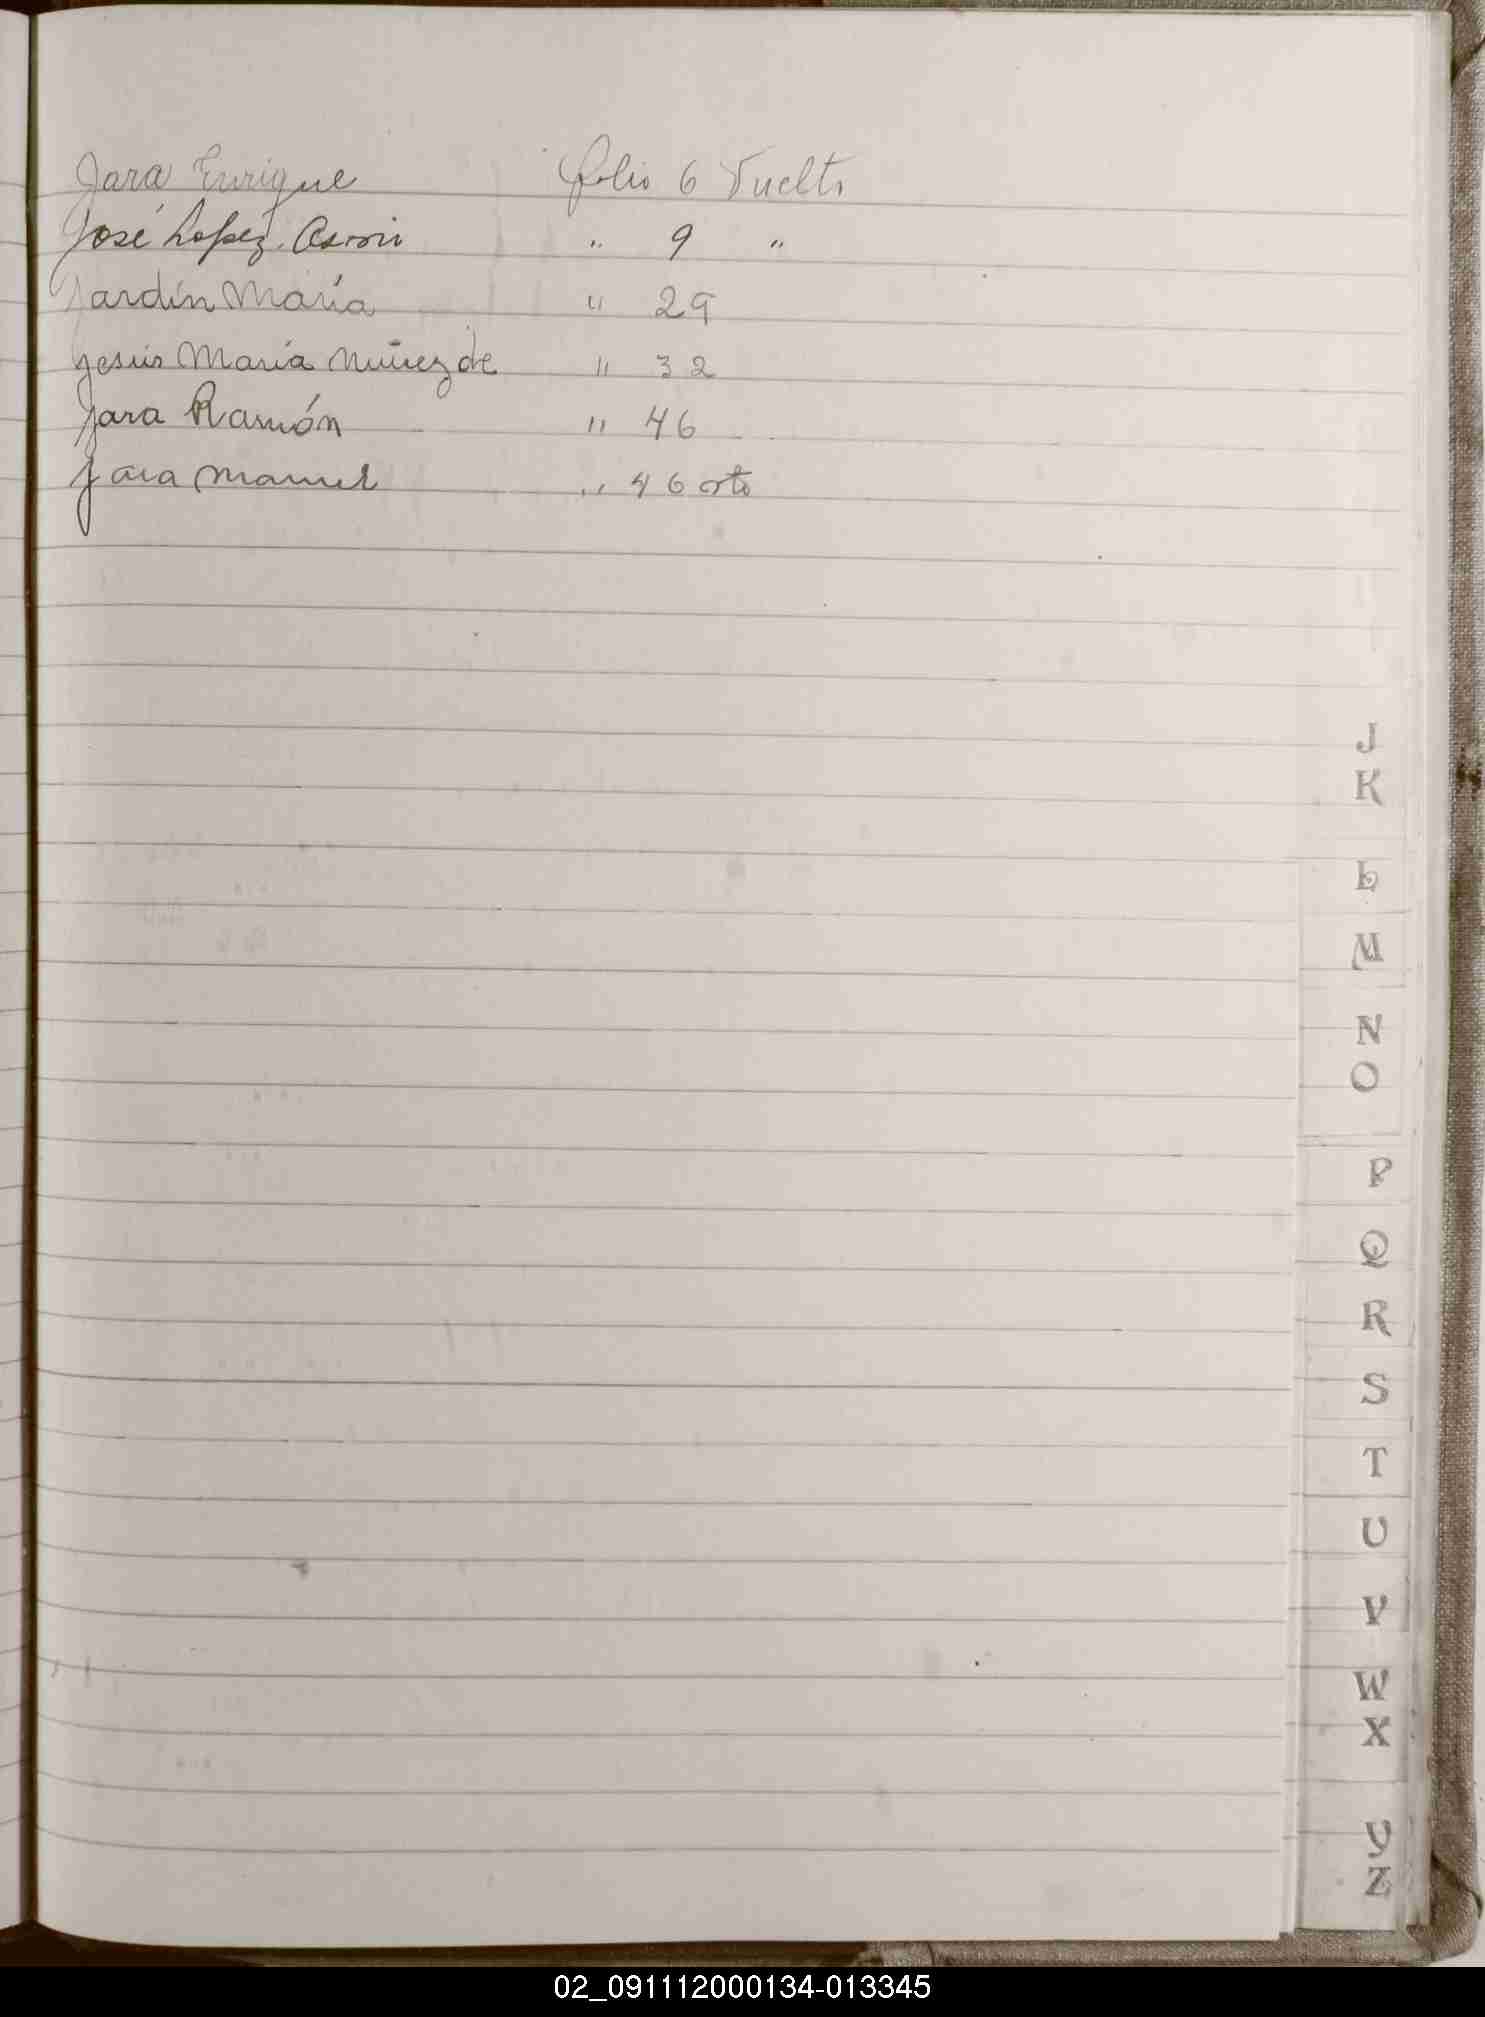 Jara Enrique folio 6 Vuelto
José Lopez " 9 "
Jardín María " 29
Jesús María Núñez de " 32
Jara Ramón " 46
Jara Manuel " 46 vto
J
K
L
M
N
O
P
Q
R
S
T
U
V
W
X
Y
Z
02_091112000134-013345